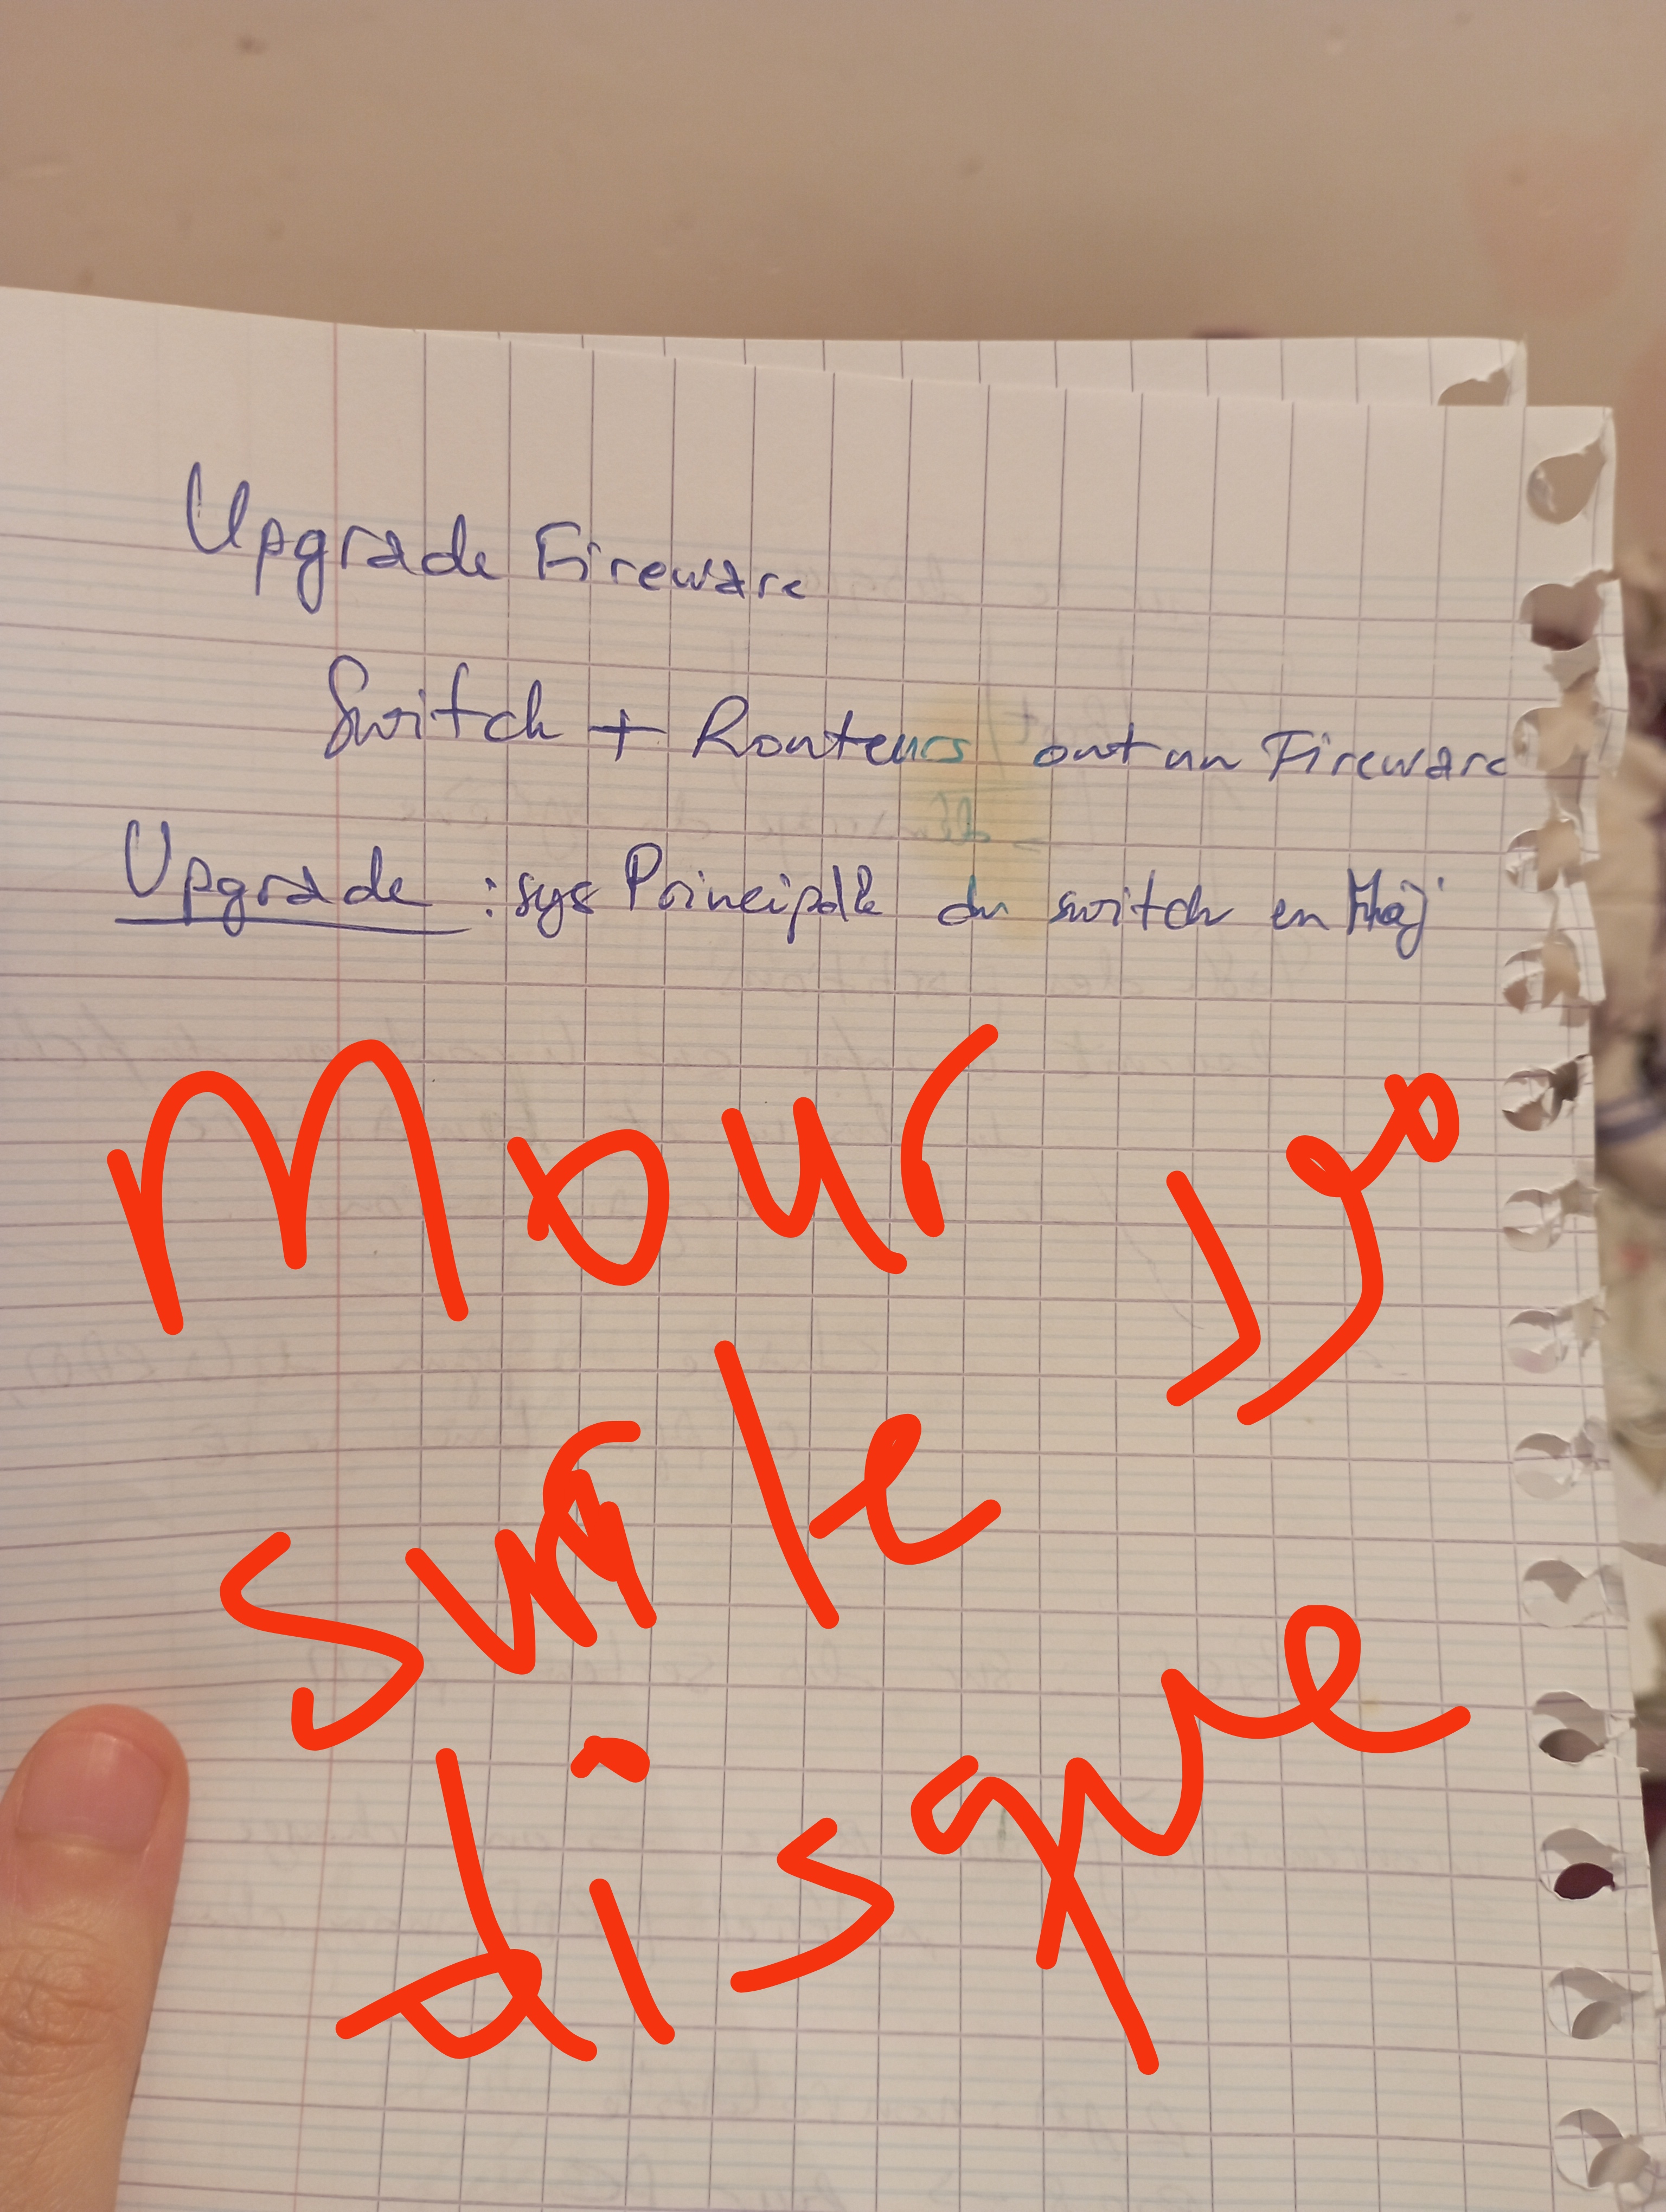 Upgrade Fireware
Switch + Routeurs ont un Fireware
Upgrade : sys Principale du switch en Màj
Mour
sur le
disque